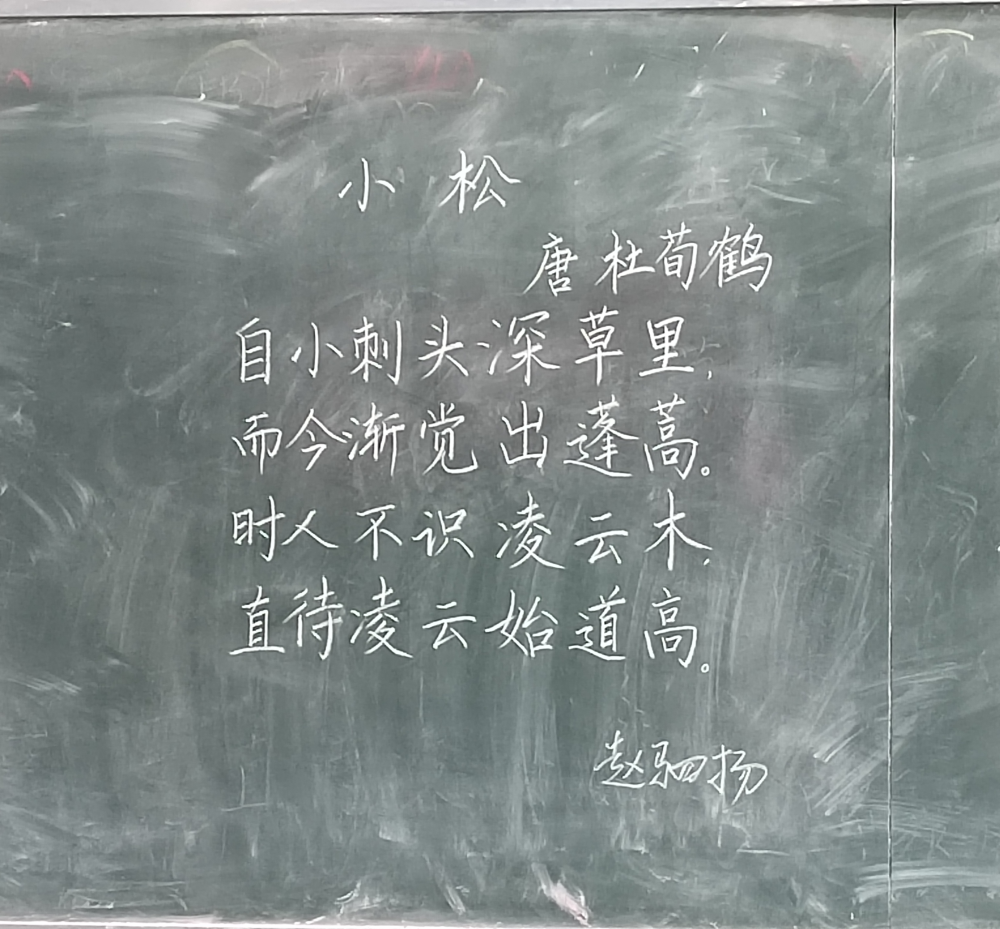 小松
唐 杜荀鹤
自小刺头深草里,
而今渐觉出蓬蒿。
时人不识凌云木,
直待凌云始道高。
赵驷扬